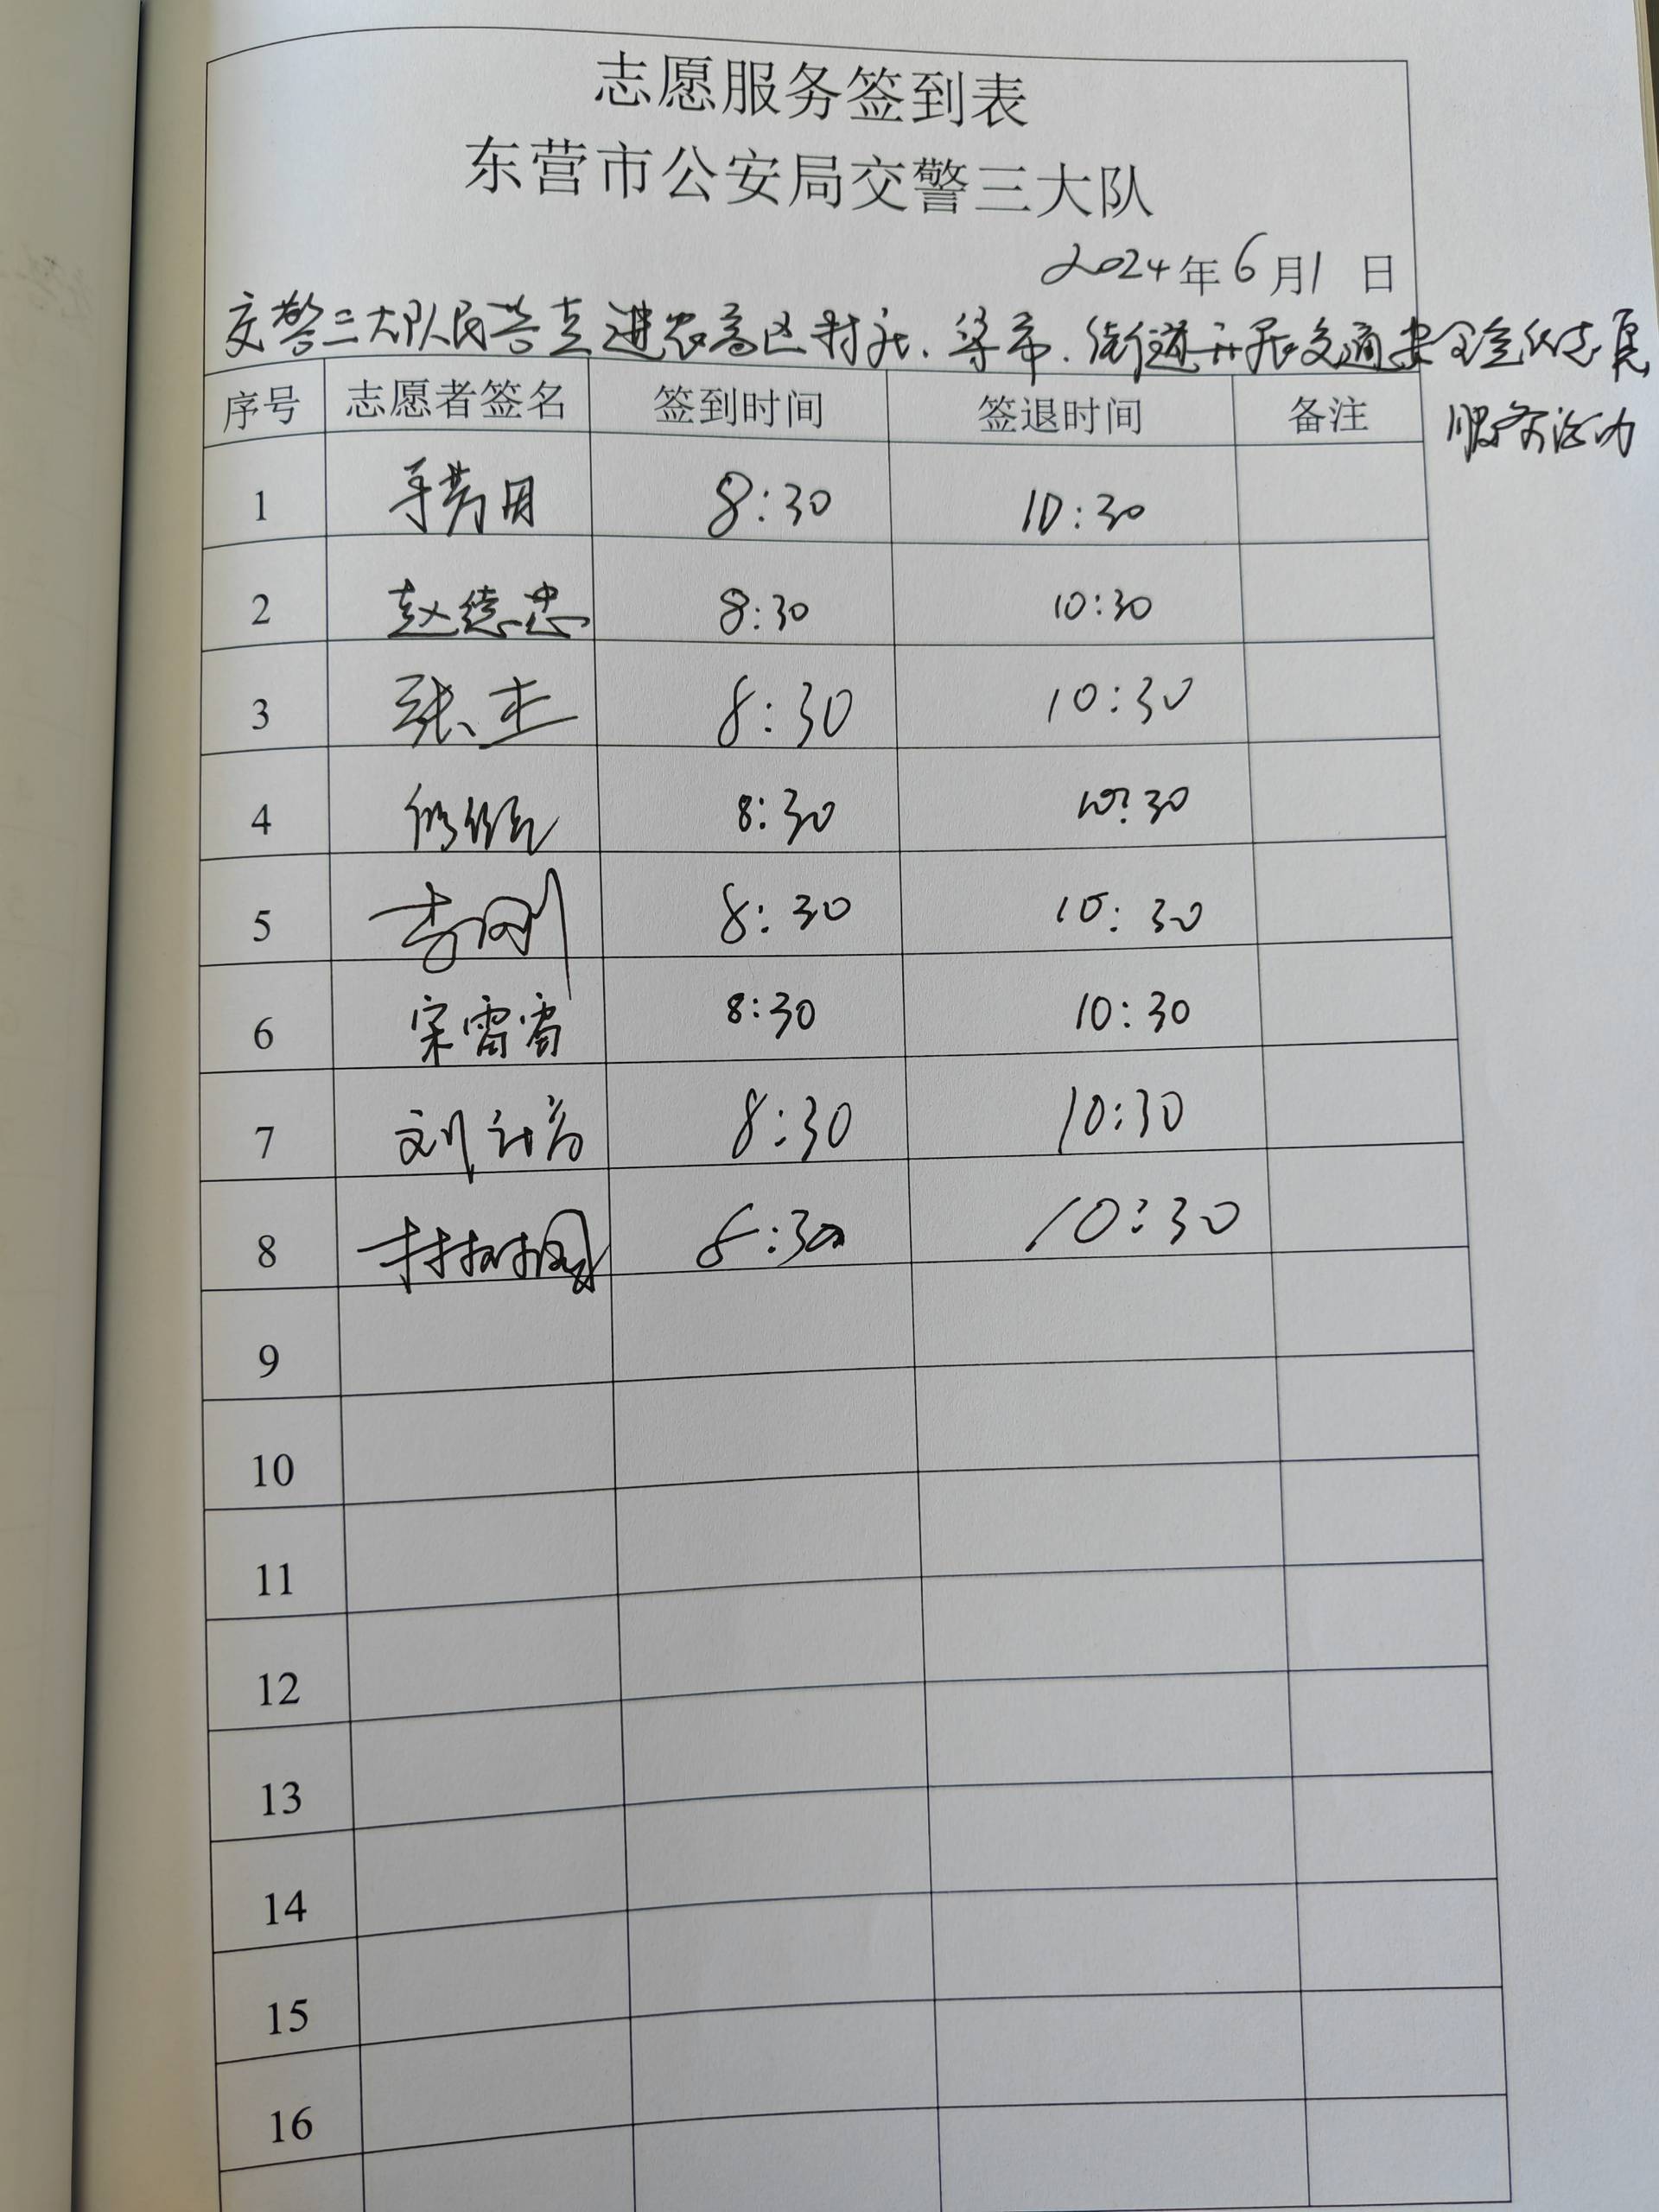 志愿服务签到表
东营市公安局交警三大队
2024年6月1日
交警三大队民警走进农高区村社、集市、街道开展交通安全宣传志愿
服务活动
序号 志愿者签名 签到时间 签退时间 备注
1 8:30 10:30
2 赵德忠 8:30 10:30
3 张杰 8:30 10:30
4 8:30 10:30
5 李刚 8:30 10:30
6 宋雷雷 8:30 10:30
7 刘 8:30 10:30
8 8:30 10:30
9
10
11
12
13
14
15
16